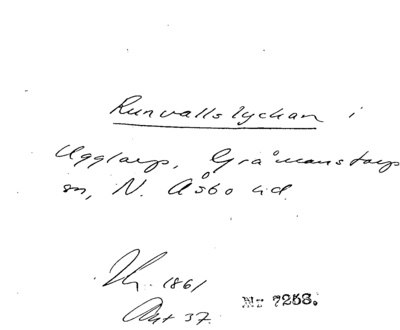 Runvallslyckan i
Ugglarp, Gråmanstorps
sn, N. Åsbo hd.
1861
Akt 37.
Nr 7253.